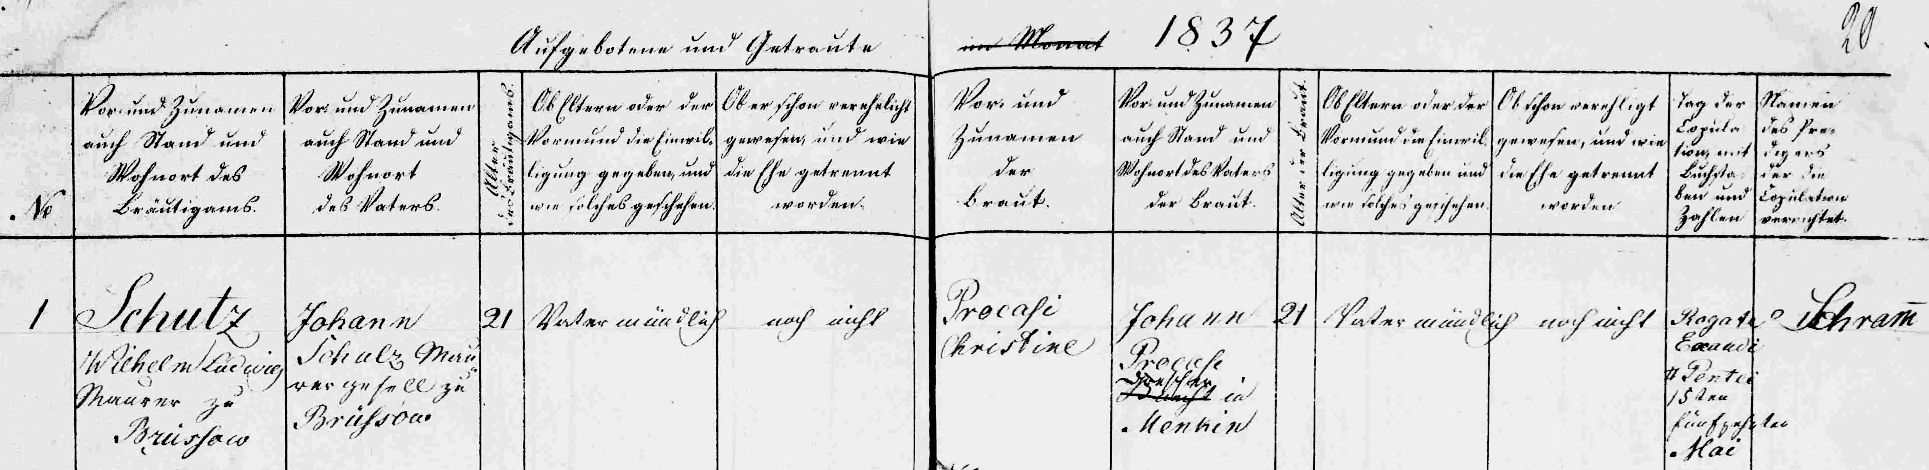 Aufgebotene und Getraute im Monat 1837
20
No
Vor- und Zunamen
auch Stand und
Wohnort des
Bräutigams.
Vor- und Zunamen
auch Stand und
Wohnort
des Vaters.
Alter
des Bräutigams.
Ob Eltern oder der
Vormund die Einwil-
ligung gegeben, und
wie solches geschehen.
Ob er schon verehelicht
gewesen, und wie
die Ehe getrennt
worden.
Vor- und
Zunamen
der
Braut.
Vor- und Zunamen
auch Stand und
Wohnort des Vaters
der Braut.
Alter der Braut.
Ob Eltern oder der
Vormund die Einwil-
ligung gegeben und
wie solches geschehen.
Ob schon verehligt
gewesen, und wie
die Ehe getrennt
worden
Tag der
Copula
tion, mit
Buchsta-
ben und
Zahlen
Namen
des Pre-
digers
der die
Copulation
verrichtet.
1
Schutz
Wilhelm Ludwig
Maurer zu
Brüssow
Johann
Schulz Mau
rergesell zu
Brüssow.
21
Vater mündlich
noch nicht
Procasi
Christine
Johann
Procasi
Drescher
Knecht in
Menkin
21
Vater mündlich
noch nicht
Rogate
Exaudi
15ten
fünfzehnten
Mai
Schram̅